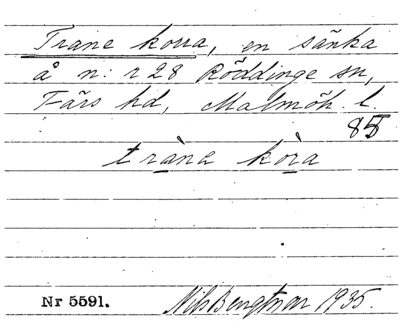 Trane korra, en sänka
å n:r 28 Röddinge sn,
Färs hd, Malmöh. l.
85
tràna kòra
Nr 5591. Nils Bengtsson 1935.